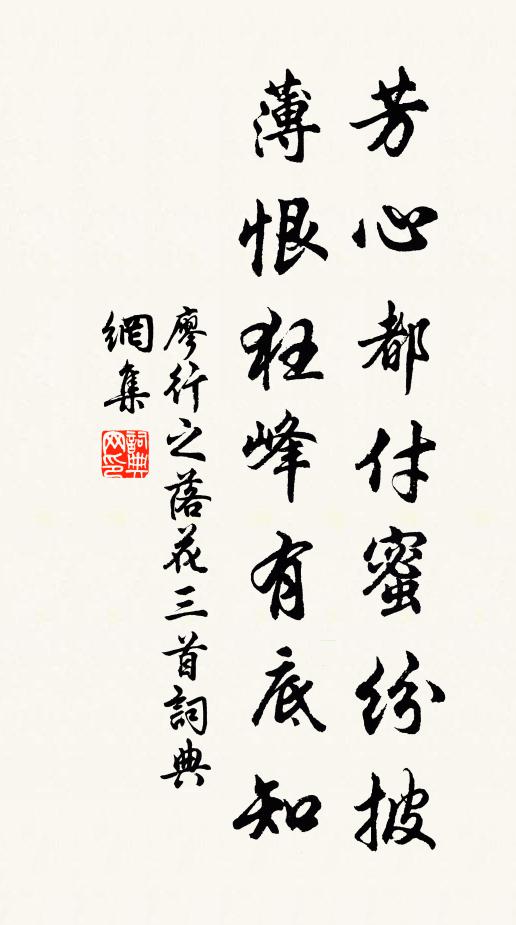 芳心都付蜜紛披
薄恨狂峰有底知
廖行之落花三首詞典
網集
詞典
网印